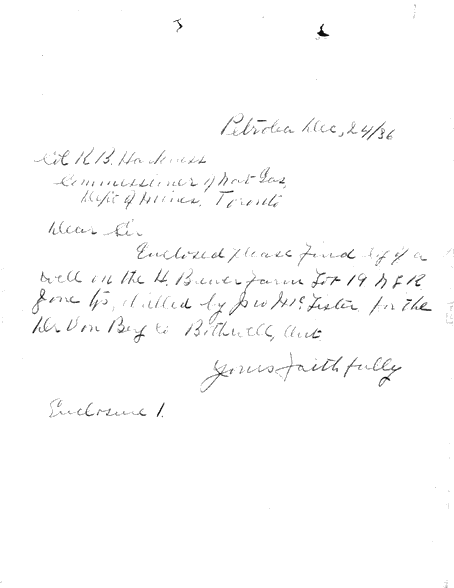 Petrolea Dec, 24/36
Col R B. Harkness
Commissioner of Nat Gas,
Dept of Mines, Toronto
Dear Sir
Enclosed please find log of a
well on the H. Brewer farm Lot 19 N L R
Zone Tp, drilled by for the
Dr Von Berg Co Bothwell, Ont
Yours faithfully
Enclosure 1.